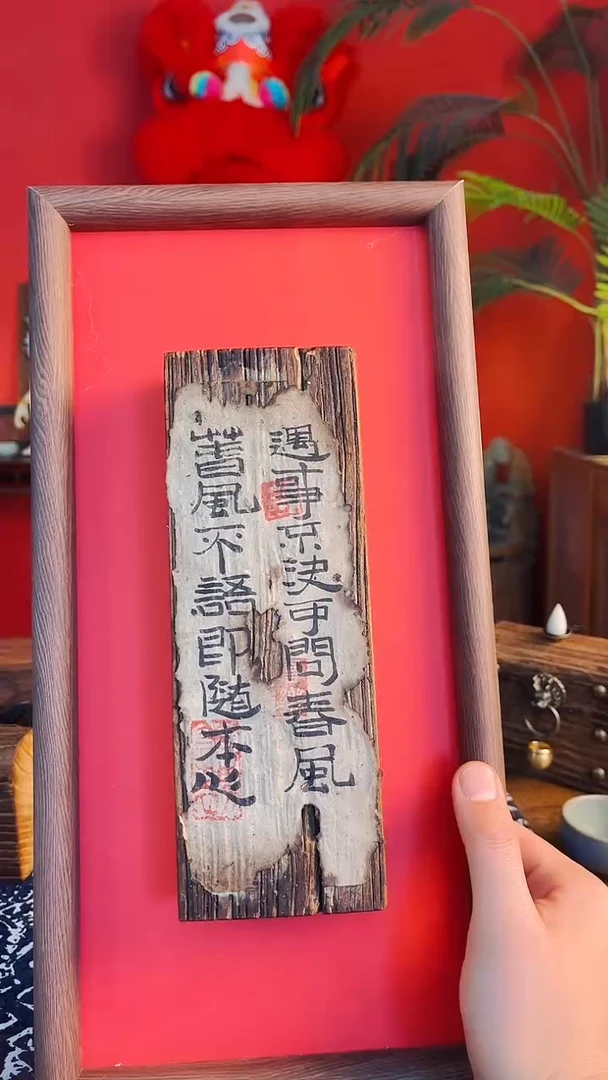 遇事不決可問春風
萅風不語即隨本心